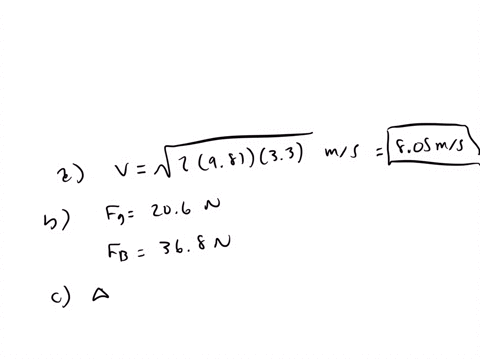 a) V = √2(9.81)(3.3) m/s = 8.05 m/s
b) Fg = 20.6 N
FB = 36.8 N
c) Δ